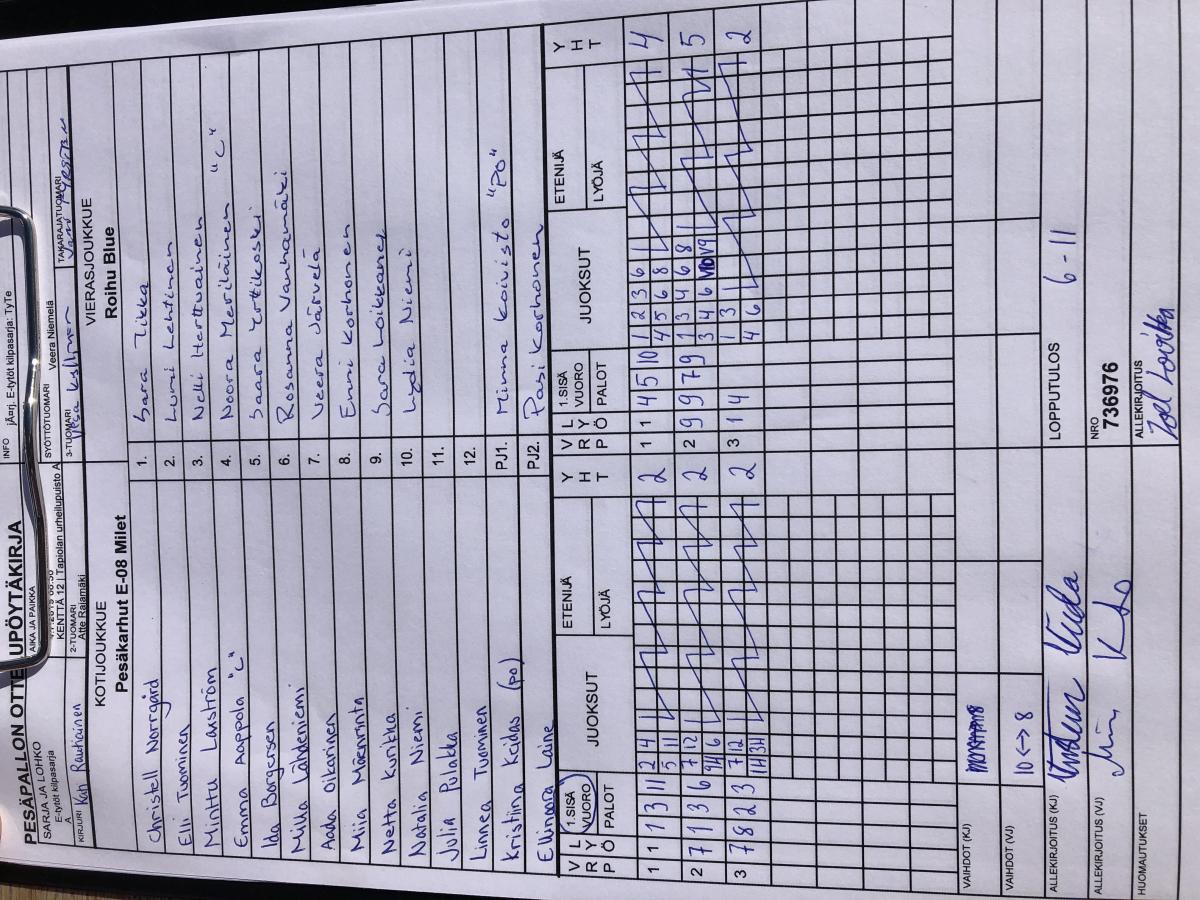 PESÄPALLON OTTELUPÖYTÄKIRJA
SARJA JA LOHKO
E-tytöt kilpasarja
A
AIKA JA PAIKKA
KENTTÄ 12 | Tapiolan urheilupuisto A
INFO
jÄrj. E-tytöt kilpasarja: TyTe
KIRJURI
Rauhiainen
2-TUOMARI
Atte Rajamäki
3-TUOMARI
SYÖTTÖTUOMARI
Veera Niemelä
TAKARAJATUOMARI
KOTIJOUKKUE
Pesäkarhut E-08 Milet
VIERASJOUKKUE
Roihu Blue
Christell Norrgård 1. Sara Tikka
Elli Tuominen 2. Lumi Lehtinen
Minttu Lanström 3. Nelli Herttuainen
Emma Aappola "C" 4. Noora Meriläinen "C"
Ida Borgersen 5. Saara
Milla Lähdeniemi 6. Rosanna Vanhamäki
Aada Oikarinen 7. Veera Järvelä
Miia Mäenrinta 8. Enni Korhonen
Netta Kurikka 9. Sara Loikkanen
Natalia Niemi 10. Lydia Niemi
Julia Pulakka 11.
Linnea Tuominen 12.
Kristina Keihas (po) PJ1. Minna Koivisto "PO"
Ellinoora Laine PJ2. Pasi Korhonen
V P L 1.SISÄ VUORO JUOKSUT ETENIJÄ Y H T V P L 1.SISÄ VUORO JUOKSUT ETENIJÄ Y H T
R Y Ö PALOT LYÖJÄ R Y Ö PALOT LYÖJÄ
1 1 1 3 11 2 4 2 1 1 4 5 10 1 2 3 6 4
5 11 4 5 6 8
2 7 1 3 6 7 12 2 2 9 9 7 9 1 3 4 6 8 5
6 3 4 6
3 7 8 2 3 7 12 2 3 1 4 1 3 2
4 6
VAIHDOT (KJ)
VAIHDOT (VJ) 10 <-> 8
ALLEKIRJOITUS (KJ)
LOPPUTULOS 6 - 11
ALLEKIRJOITUS (VJ)
NRO
736976
HUOMAUTUKSET
ALLEKIRJOITUS